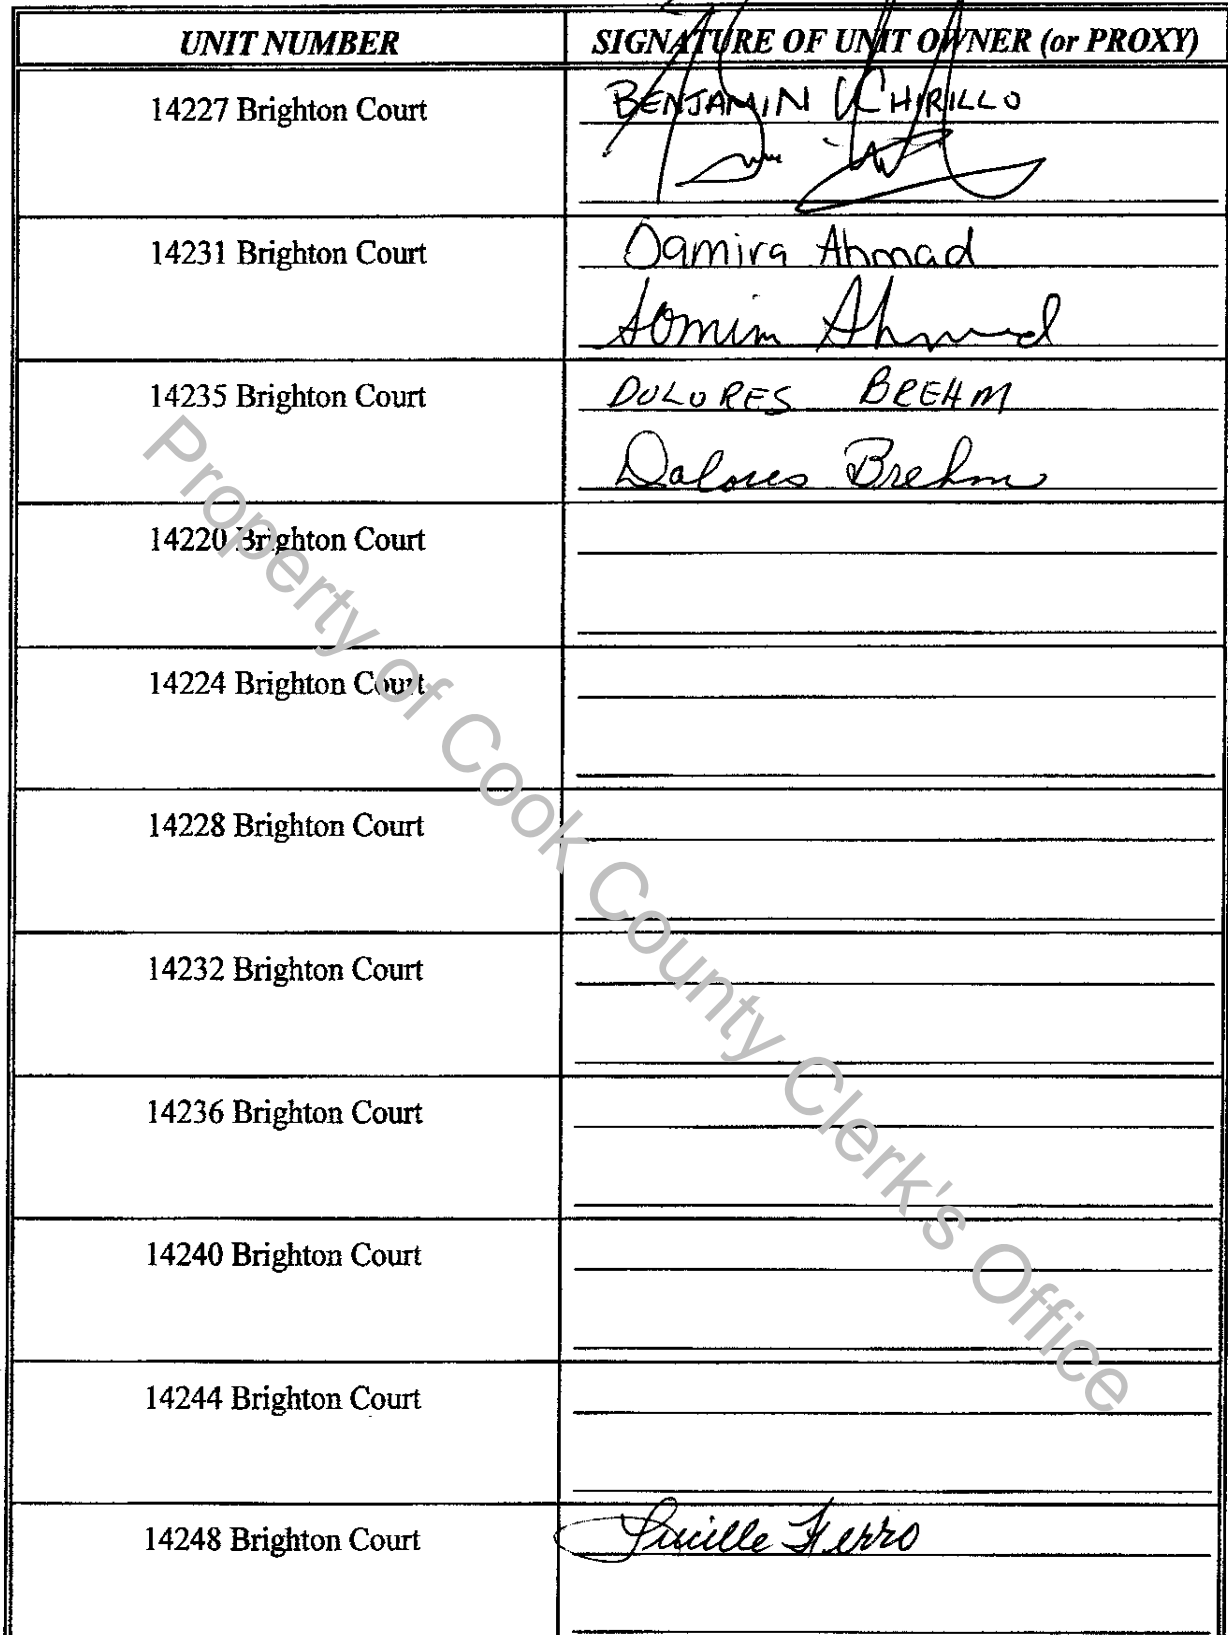 UNIT NUMBER SIGNATURE OF UNIT OWNER (or PROXY)
14227 Brighton Court BENJAMIN CHIRILLO
14231 Brighton Court Damira Ahmad
Ahmad
14235 Brighton Court DOLORES BREHM
Dolores Brehm
14220 Brighton Court
14224 Brighton Court
14228 Brighton Court
14232 Brighton Court
14236 Brighton Court
14240 Brighton Court
14244 Brighton Court
14248 Brighton Court Lucille Ferro
Property of Cook County Clerk's Office